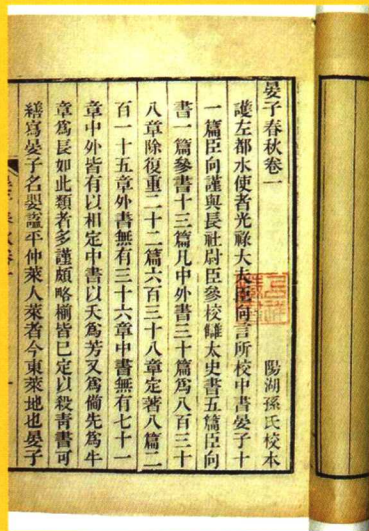 晏子春秋卷一
陽湖孫氏校本
護左都水使者光祿大夫臣向言所校中書晏子十
一篇臣向謹與長社尉臣參校讎太史書五篇臣向
書一篇參書十三篇凡中外書三十篇爲八百三十
八章除復重二十二篇六百三十八章定著八篇二
百一十五章外書無有三十六章中書無有七十一
章中外皆有以相定中書以夭爲芳又爲備先爲牛
章爲長如此類者多謹頗略椾皆已定以殺青書可
繕寫晏子名嬰謚平仲萊人萊者今東萊地也晏子